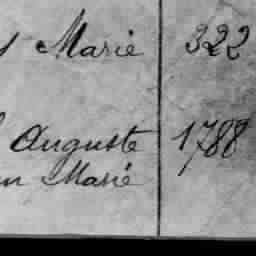 Marie 322
Auguste 1788
Marie